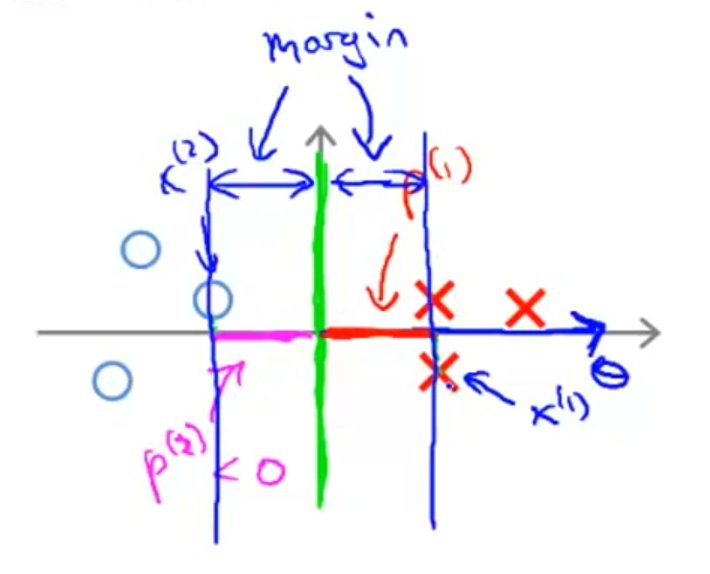 margin
x^(2)
p^(1)
θ
x^(1)
p^(2) < 0